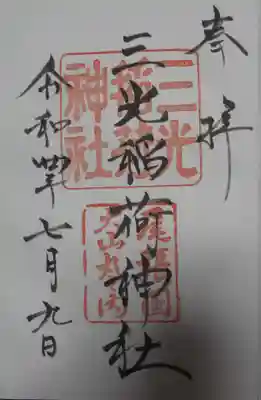 奉拝
三光稲荷神社
令和四年七月九日
三光稲荷神社
尾張国犬山丸の内